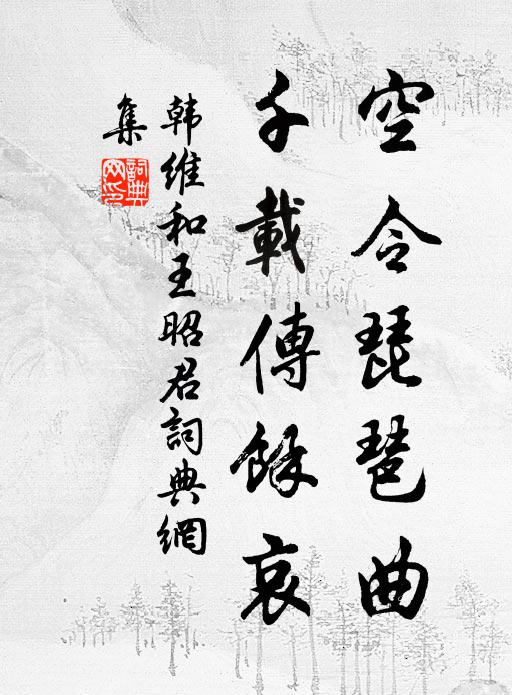 空令琵琶曲
千載傳餘哀
韩维和王昭君詞典網
集
詞典网印